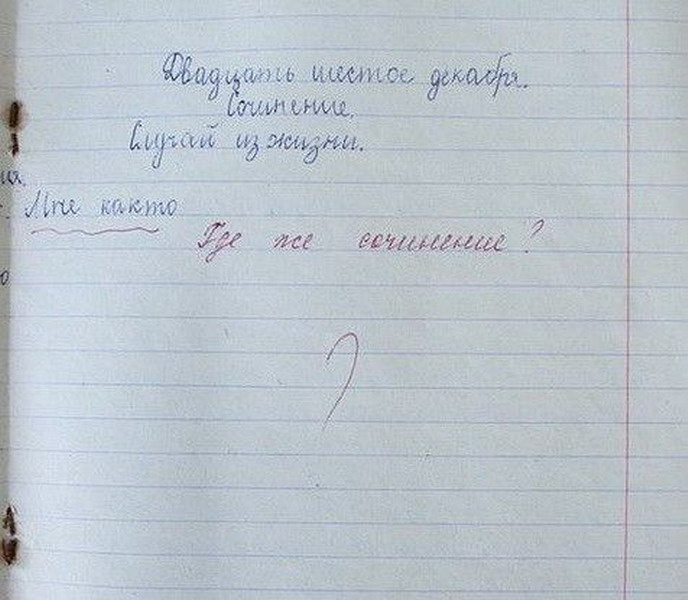 Двадцать шестое декабря.
Сочинение.
Случай из жизни.
ия.
Мне както
Где же сочинение?
о
?